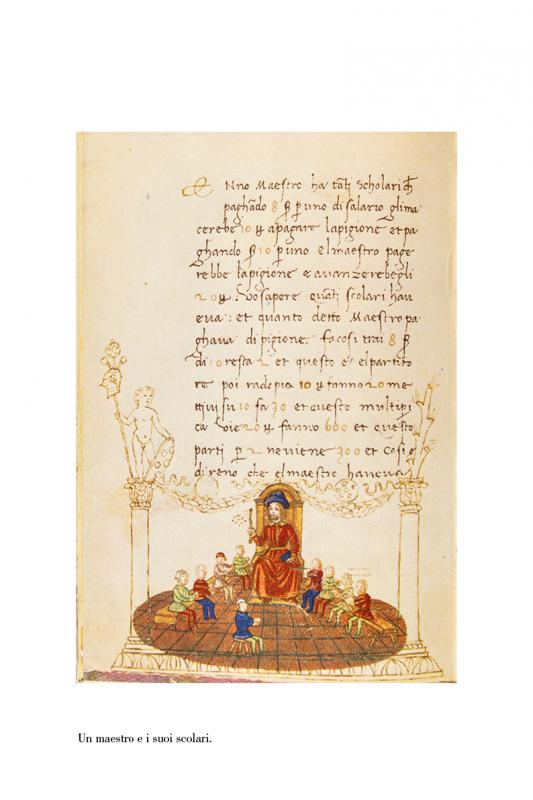 Nno Maestro ha tāti Scholari ch
paghādo 8 per uno di salario glima
cerebe 10 apagare lapigione et pa
ghando 10 per uno elmaestro page
rebbe lapigione e avanzerebegli
20. Vo sapere quāti scolari hav
eva: et quanto detto Maestro pa
ghava di pigione. fa cosi trai 8
di 10 resta 2 et questo e elpartito
re poi radopia 10 fanno 20 me
ttivi su 10 fa 30 et questo multipri
ca vie 20 fanno 600 et questo
parti per 2 neviene 300 et cosi
direno che elmaestro haveva
Un maestro e i suoi scolari.